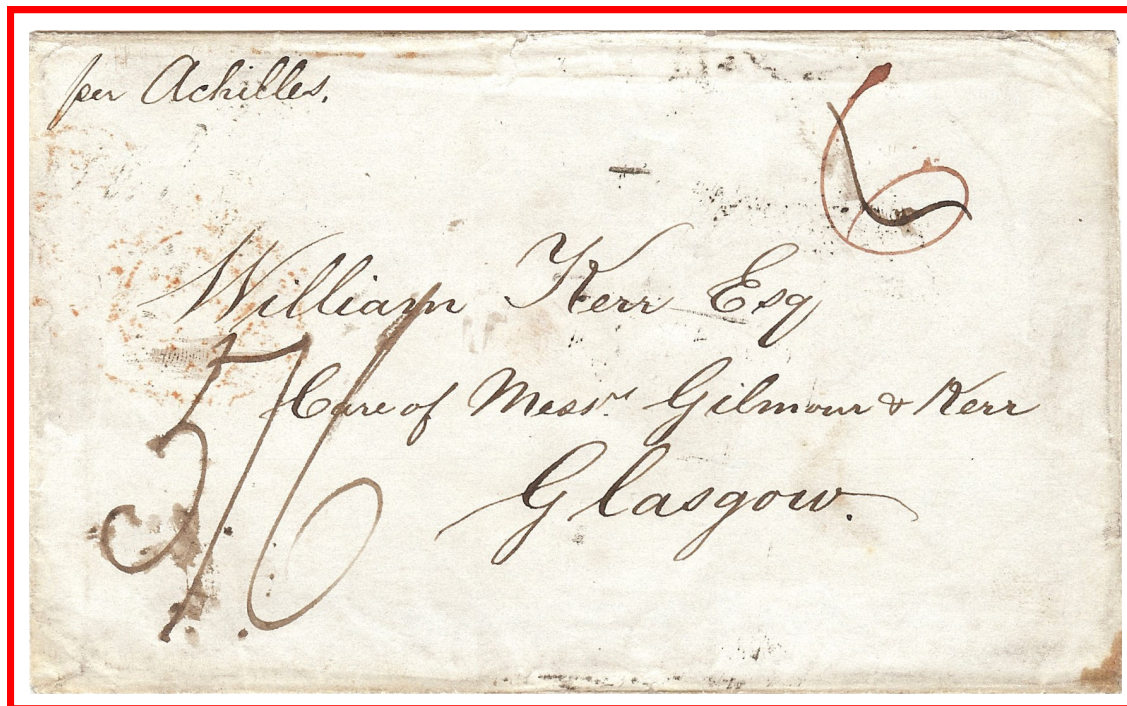 per Achilles.
6
William Kerr Esq
Care of Messrs Gilmour & Kerr
Glasgow.
5/6